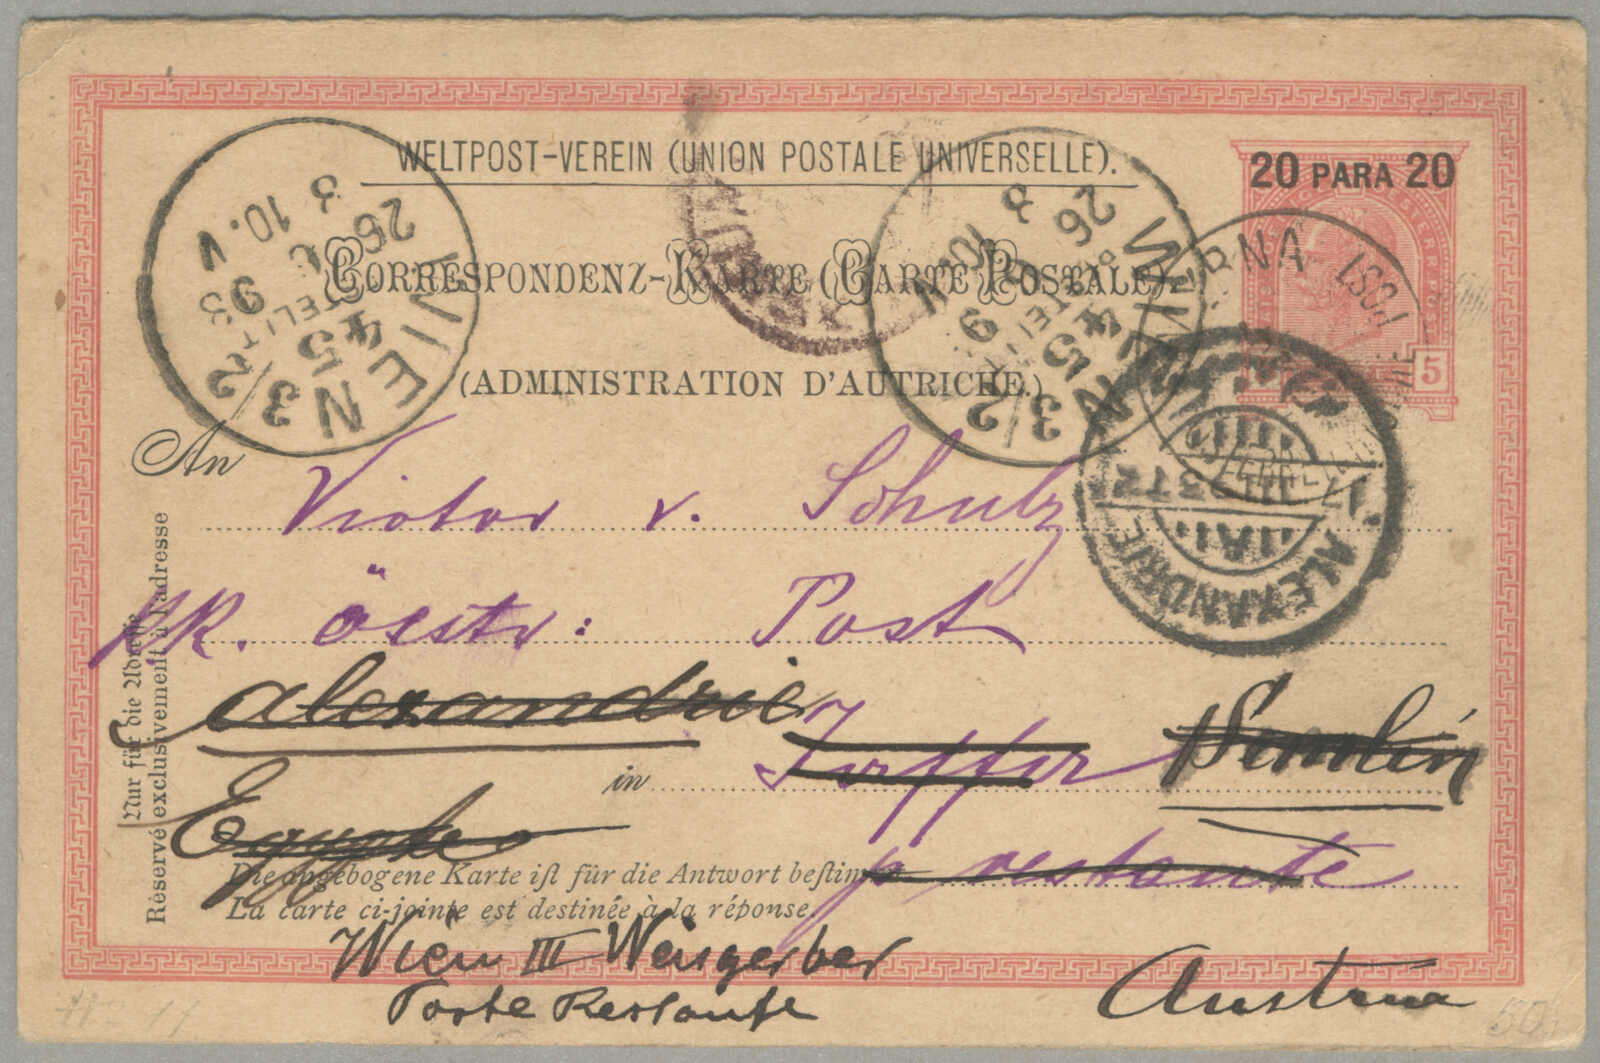 WELTPOST-VEREIN (UNION POSTALE UNIVERSELLE).
20 PARA 20
CORRESPONDENZ-KARTE (CARTE POSTALE).
(ADMINISTRATION D'AUTRICHE.)
5
WIEN
3/2
45
26 9 93
3 10. V
WIEN
3/2
45
26 9
3 10. V
ALEXANDRIE
An Victor v. Schulz
KK. öestr: Post
Alexandrie
in Jaffa Semlin
Nur für die Adresse
Réservé exclusivement à l'adresse
p restante
Die angebogene Karte ist für die Antwort bestimmt.
La carte ci-jointe est destinée à la réponse.
Wien III Weisgerber
Poste Restante
Austria